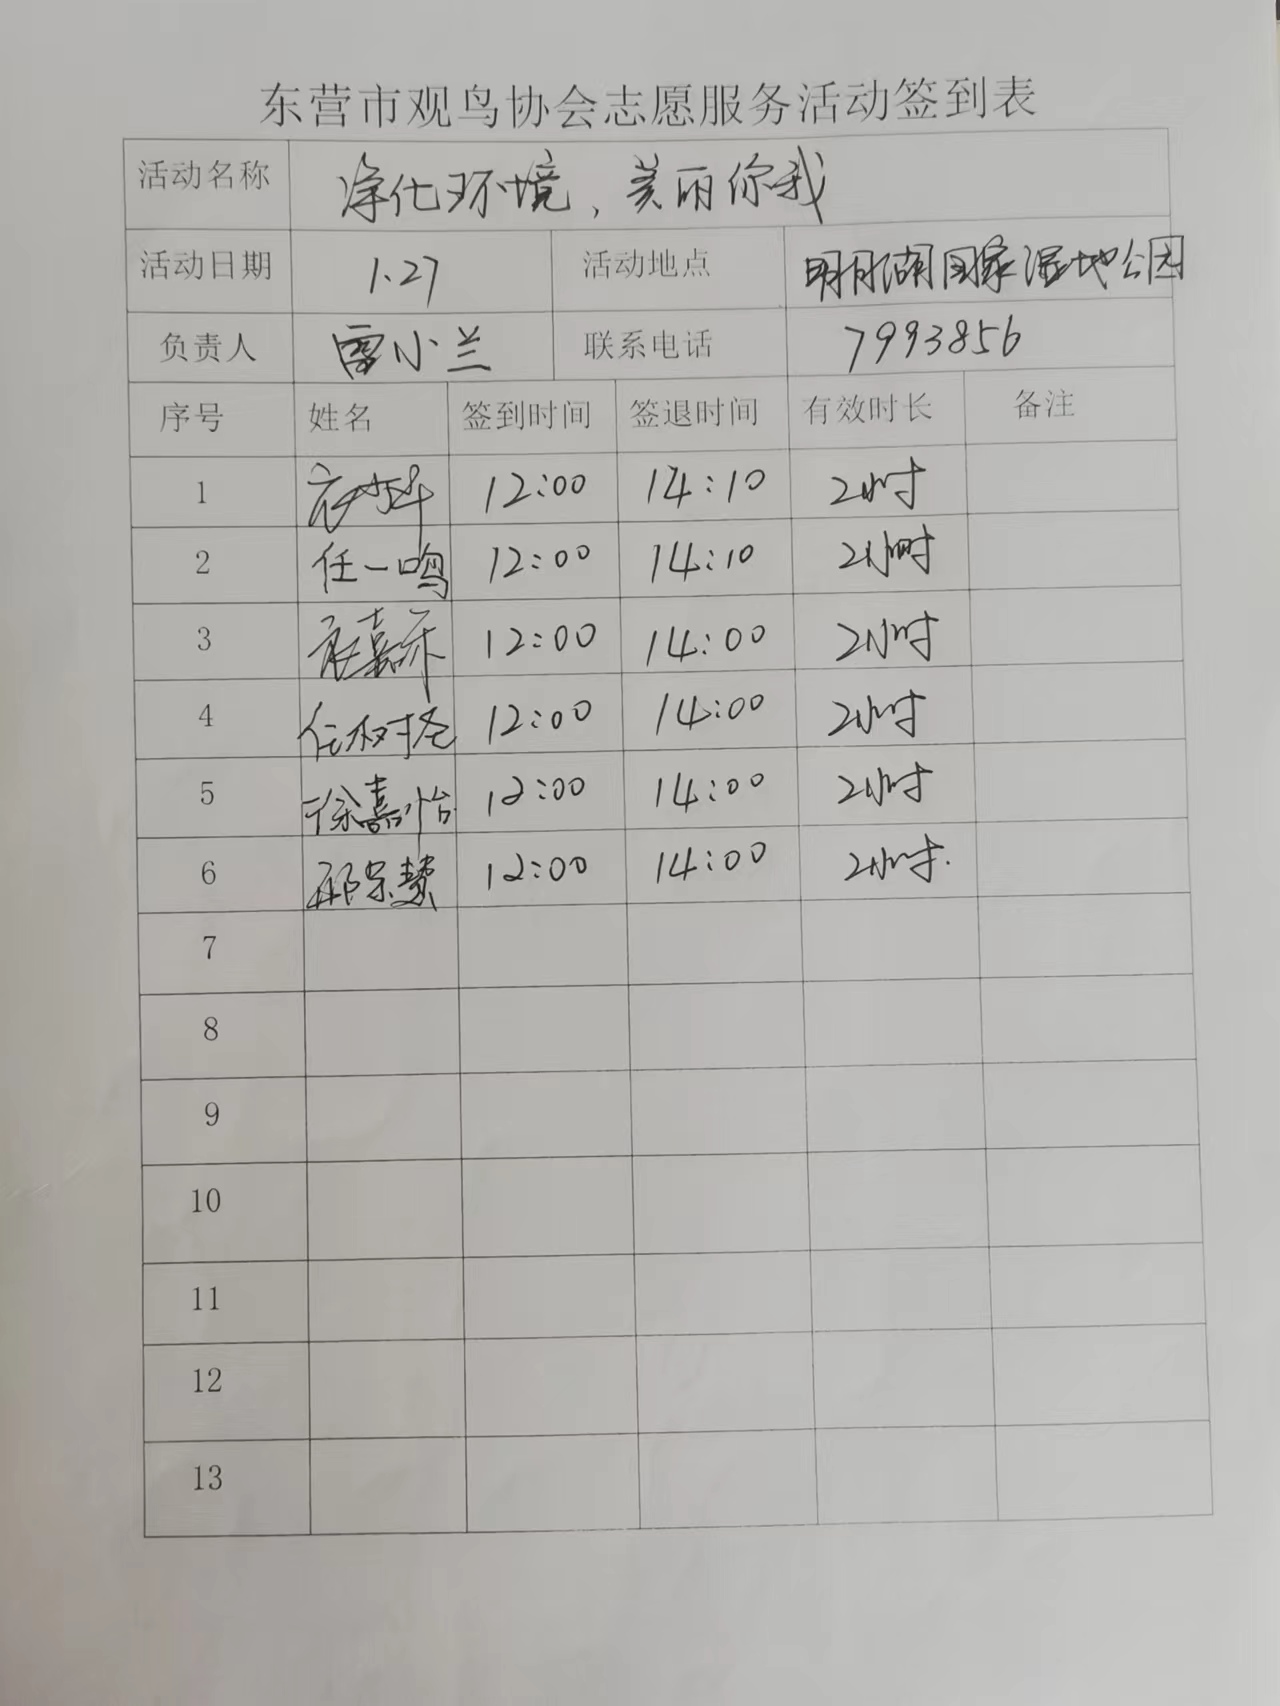 东营市观鸟协会志愿服务活动签到表
活动名称 净化环境、美丽你我
活动日期 1.27 活动地点 明月湖国家湿地公园
负责人 雷小兰 联系电话 7993856
序号 姓名 签到时间 签退时间 有效时长 备注
1 12:00 14:10 2小时
2 任一鸣 12:00 14:10 2小时
3 12:00 14:00 2小时
4 12:00 14:00 2小时
5 徐嘉怡 12:00 14:00 2小时
6 12:00 14:00 2小时.
7
8
9
10
11
12
13